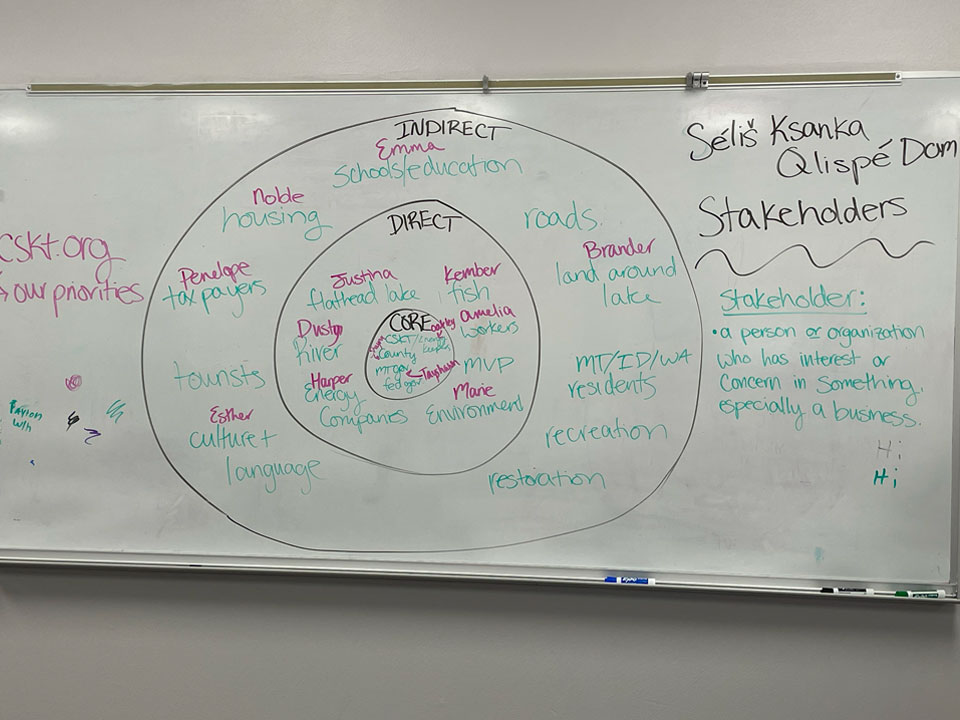 Séliš Ksanka
Qlispé Dam
Stakeholders
Stakeholder:
• a person or organization
who has interest or
concern in something,
especially a business.
Hi
Hi
cskt.org
our priorities
INDIRECT
Emma
Schools/education
Noble
housing
roads
Brander
land around
lake
Penelope
taxpayers
tourists
MT/ID/WA
residents
Esther
culture +
language
recreation
restoration
DIRECT
Justina
flathead lake
Kember
fish
Dusty
River
amelia
workers
MVP
Harper
Energy
Companies
Marie
Environment
CORE
CSKT/
County
MT gov
fed gov